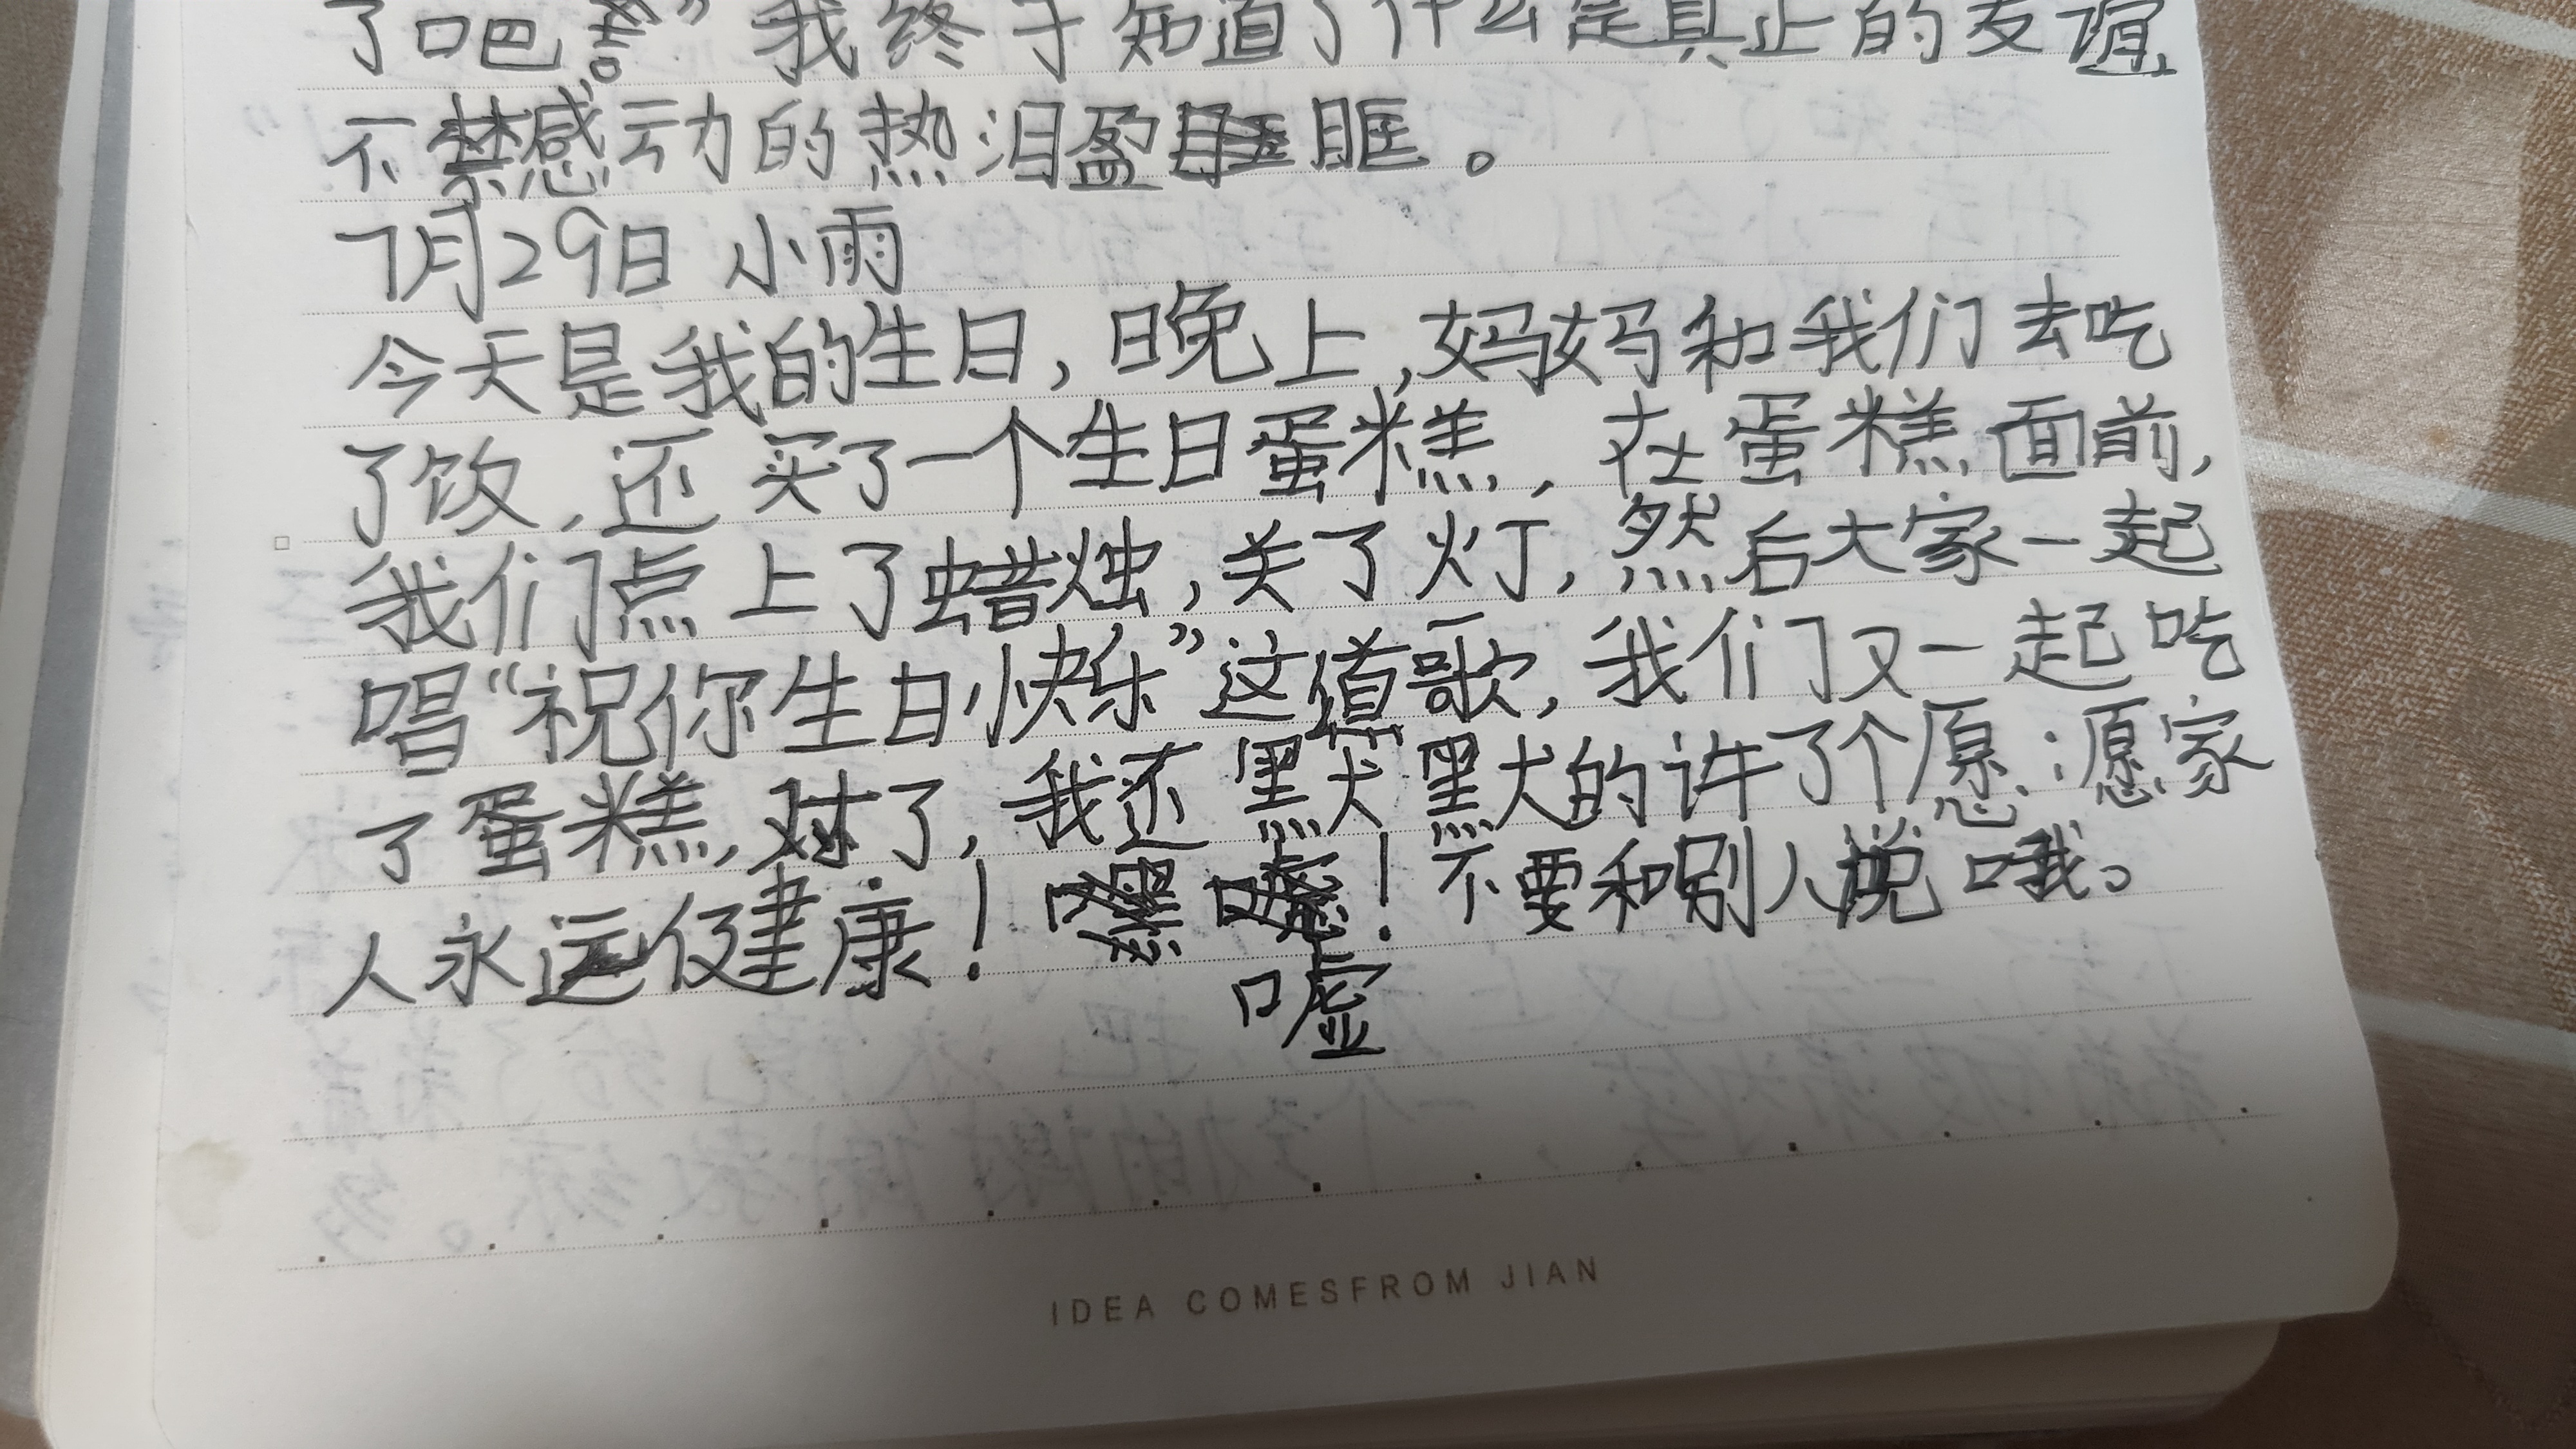 了吧。”我终于知道了什么是真正的友谊
不禁感动的热泪盈眶。
7月29日 小雨
今天是我的生日,晚上,妈妈和我们去吃
了饭,还买了一个生日蛋糕,在蛋糕面前,
我们点上了蜡烛,关了灯,然后大家一起
唱“祝你生日快乐”这道歌,我们又一起吃
了蛋糕,对了,我还默默的许了个愿:愿家
人永远健康!嘘!不要和别人说哦。
IDEA COMESFROM JIAN